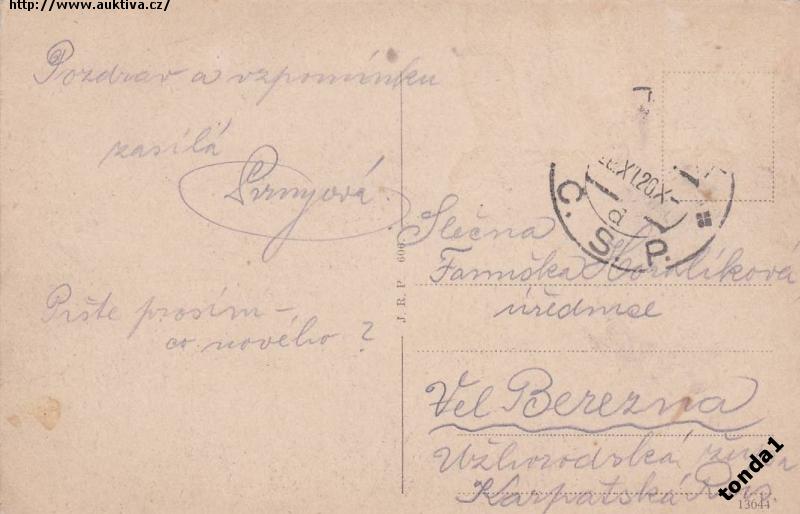 http://www.auktiva.cz/
Pozdrav a vzpomínku
zasílá
Pište prosím –
co nového?
J. R. P. 606
28.XI.20.X-
d
Č. S. P.
Slečna
Fanuška Horálíková
úřednice
Vel Berezna
Užhorodská župa
Karpatská Rus.
13644
tonda1